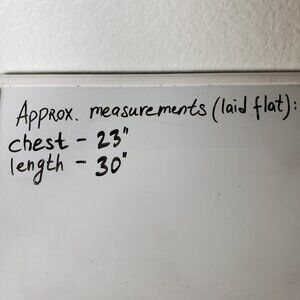 Approx. measurements (laid flat):
chest - 23"
length - 30"